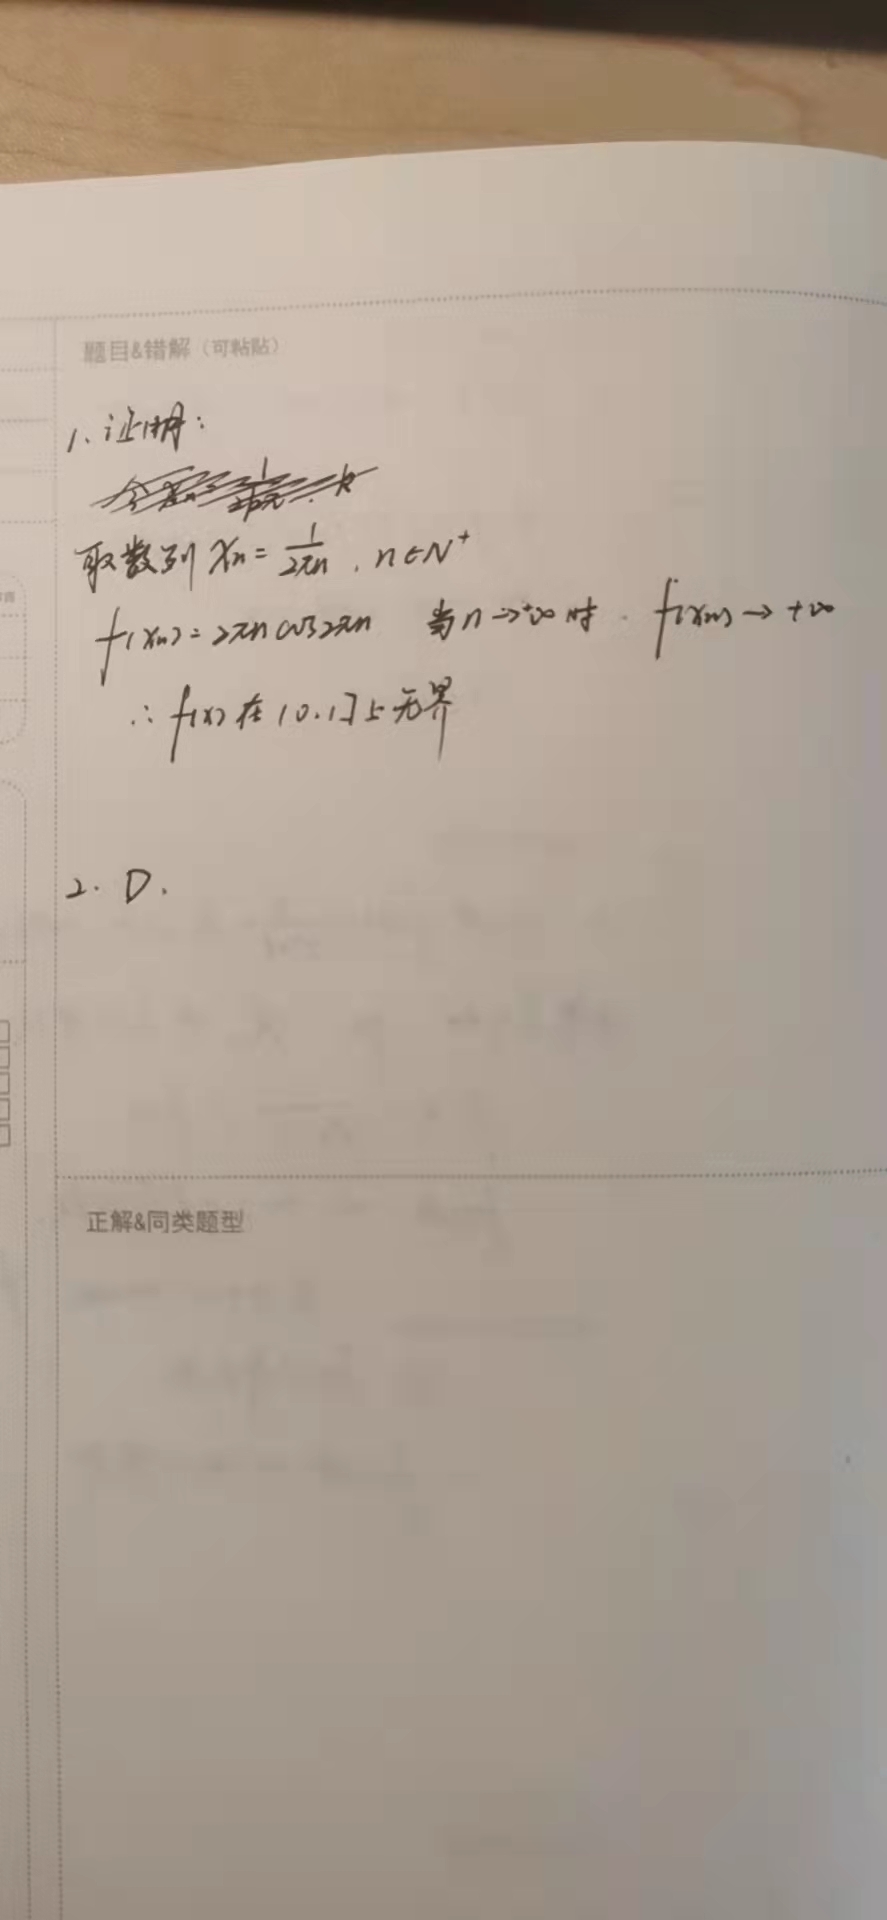 题目&错解（可粘贴）
1. 证明：
取数列 Xn = 1/2πn , n∈N⁺
f(Xn) = 2πn cos2πn 当 n→+∞ 时 . f(Xn) → +∞
∴ f(x) 在 (0.1] 上无界
2. D.
正解&同类题型